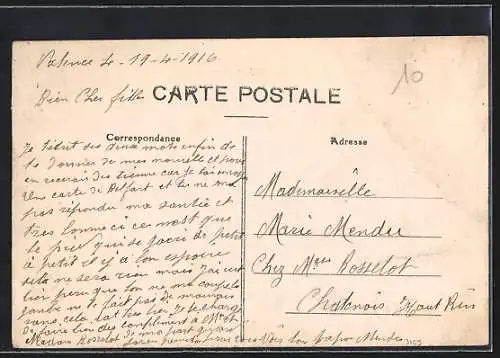 Valence le 19-4-1916
10
Bien Cher fille
CARTE POSTALE
Correspondance
Adresse
Je t'écrit ses deux mots enfin de
te donner de mes nouvelle et pour
en recevoir des tienne car je t'ai
une carte de Belfort et tu ne m'a
pas répondu ma santé et
tres bonne ici ce n'est que
le peu qui se de petit
à petit il y a bon espoire
sita ne sera rien mais j'ai
bien peur que ton ne ma
ne fait pas de mauvais
sang cela tres bien je te charge
de faire bien des compliment à Mr et
Madam Rosselot de ma part
ton papa Mendez
Mademoiselle
Marie Mendez
Chez Mme Rosselot
Chatenois Haut Rin